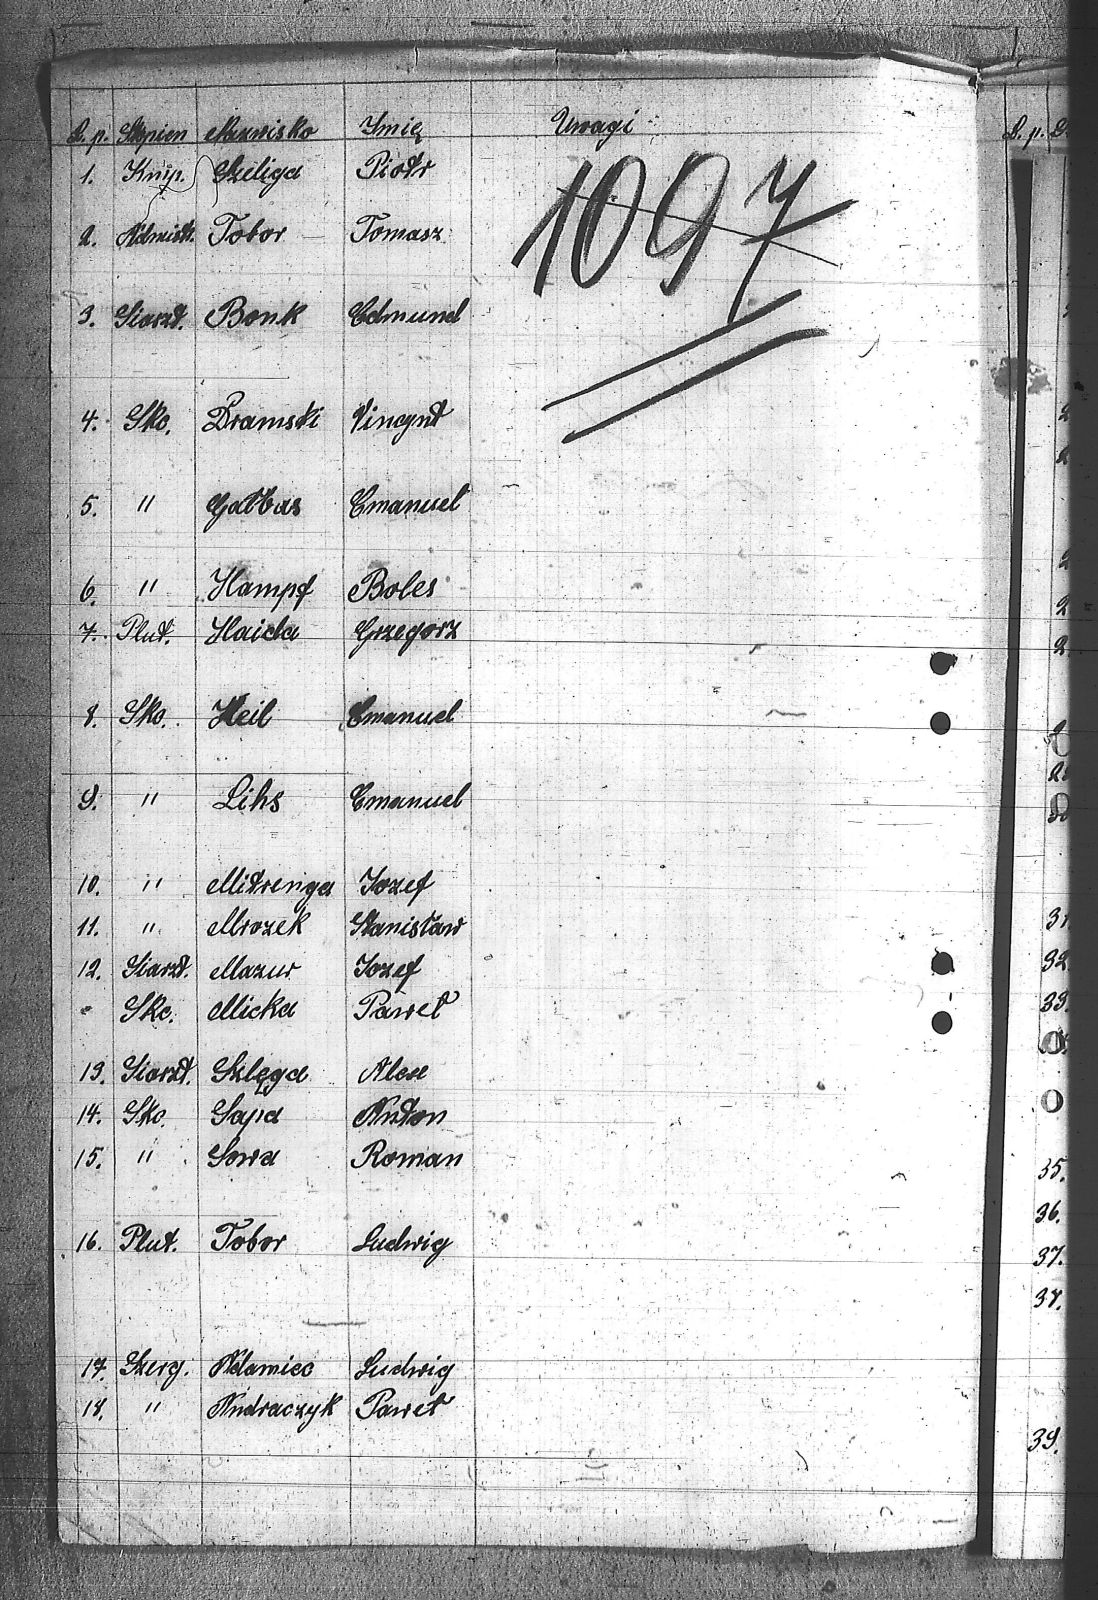 L.p. Stopien Nazwisko Imię Uwagi
1. Szeliga Piotr
1097
2. Tobor Tomasz
3. Sierżt. Bonk Edmund
4. Sko. Dramski Vincynt
5. " Gałbas Emanuel
6. " Hampf Boles
7. Plut. Haida Grzegorz
8. Sko. Heil Emanuel
9. " Lihs Emanuel
10. " Mitrenga Jozef
11. " Mrozek Stanisław
12. Sierżt. Mazur Jozef
Sko. Micka Paweł
13. Sierżt. Szlęga
14. Sko. Sapa Anton
15. " Sowa Roman
16. Plut. Tobor Ludwig
17. Szerg. Adamiec Ludwig
18. " Andraczyk Paweł
L. p.
31
32.
33.
35.
36.
37.
38.
39.